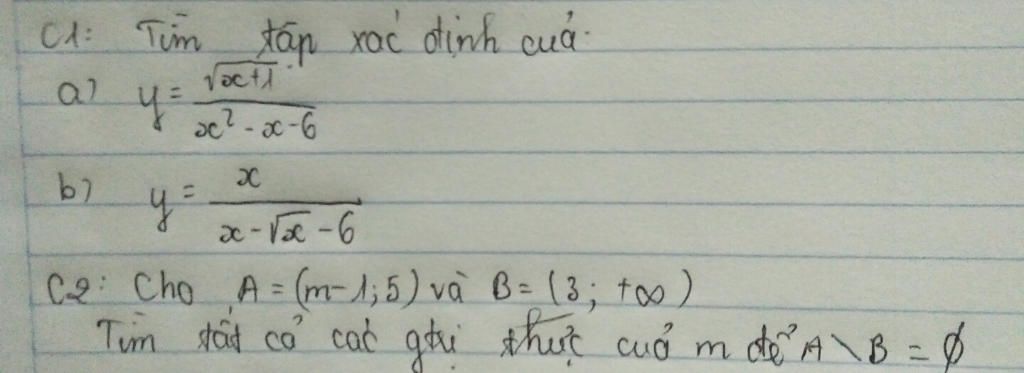 C1: Tìm tập xác định của:
a) y = \frac{\sqrt{x+1}}{x^2 - x - 6}
b) y = \frac{x}{x - \sqrt{x} - 6}
C2: Cho A = (m-1; 5) và B = (3; +∞)
Tìm tất cả các gtrị thực của m để A \ B = ∅